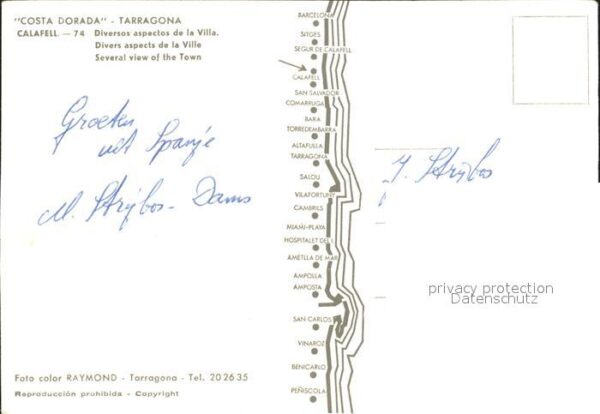 "COSTA DORADA" - TARRAGONA
CALAFELL. — 74 Diversos aspectos de la Villa.
Divers aspects de la Ville
Several view of the Town
Groeten
uit Spanje
M. Strijbos - Dams
Foto color RAYMOND - Tarragona - Tel. 20 26 35
Reproducción prohibida - Copyright
BARCELONA
SITGES
SEGUR DE CALAFELL
CALAFELL
SAN SALVADOR
COMARRUGA
BARA
TORREDEMBARRA
ALTAFULLA
TARRAGONA
SALOU
VILAFORTUNY
CAMBRILS
MIAMI-PLAYA
HOSPITALET DEL I.
AMETLLA DE MAR
AMPOLLA
AMPOSTA
SAN CARLOS
VINAROZ
BENICARLO
PEÑISCOLA
J. Strijbos
privacy protection
Datenschutz